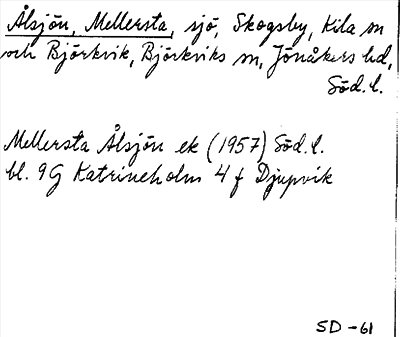 Ålsjön, Mellersta, sjö, Skogsby, Kila sn
och Björkvik, Björkviks sn, Jönåkers hd,
Söd. l.
Mellersta Ålsjön ek (1957) Söd. l.
bl. 9G Katrineholm 4 f Djupvik
SD-61